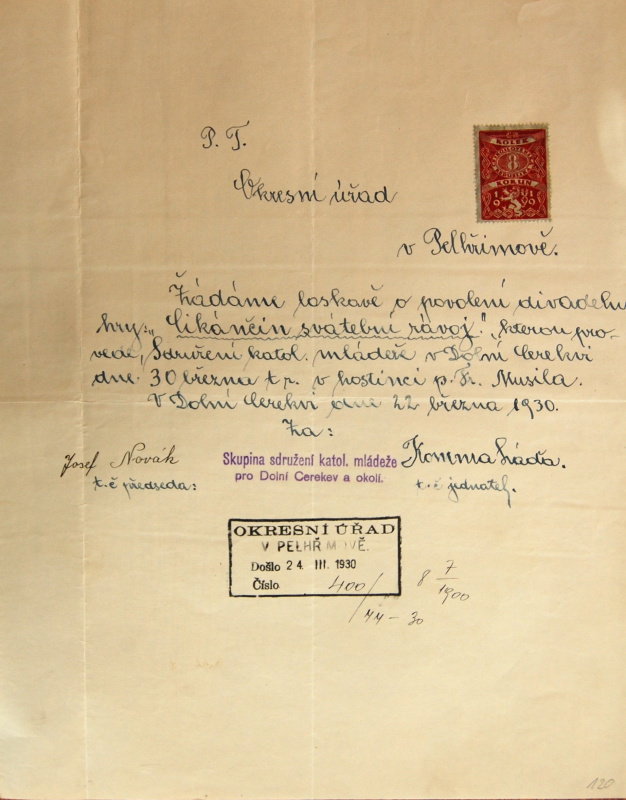 P. T.
KOLEK
8
KORUN
1919
Okresní úřad
v Pelhřimově.
Žádáme laskavě o povolení divadelní
hry: „Cikánčin svatební závoj“, kterou pro-
vede „Sdružení katol. mládeže v Dolní Cerekvi
dne 30 března t. r. v hostinci p. Fr. Musila.
V Dolní Cerekvi dne 22 března 1930.
Za:
Josef Novák
Skupina sdružení katol. mládeže
pro Dolní Cerekev a okolí.
Komma Láďa.
t. č předseda:
t. č jednatel.
OKRESNÍ ÚŘAD
V PELHŘIMOVĚ.
Došlo 24 III. 1930
Číslo 400/
8 7/1900
44 – 30
120